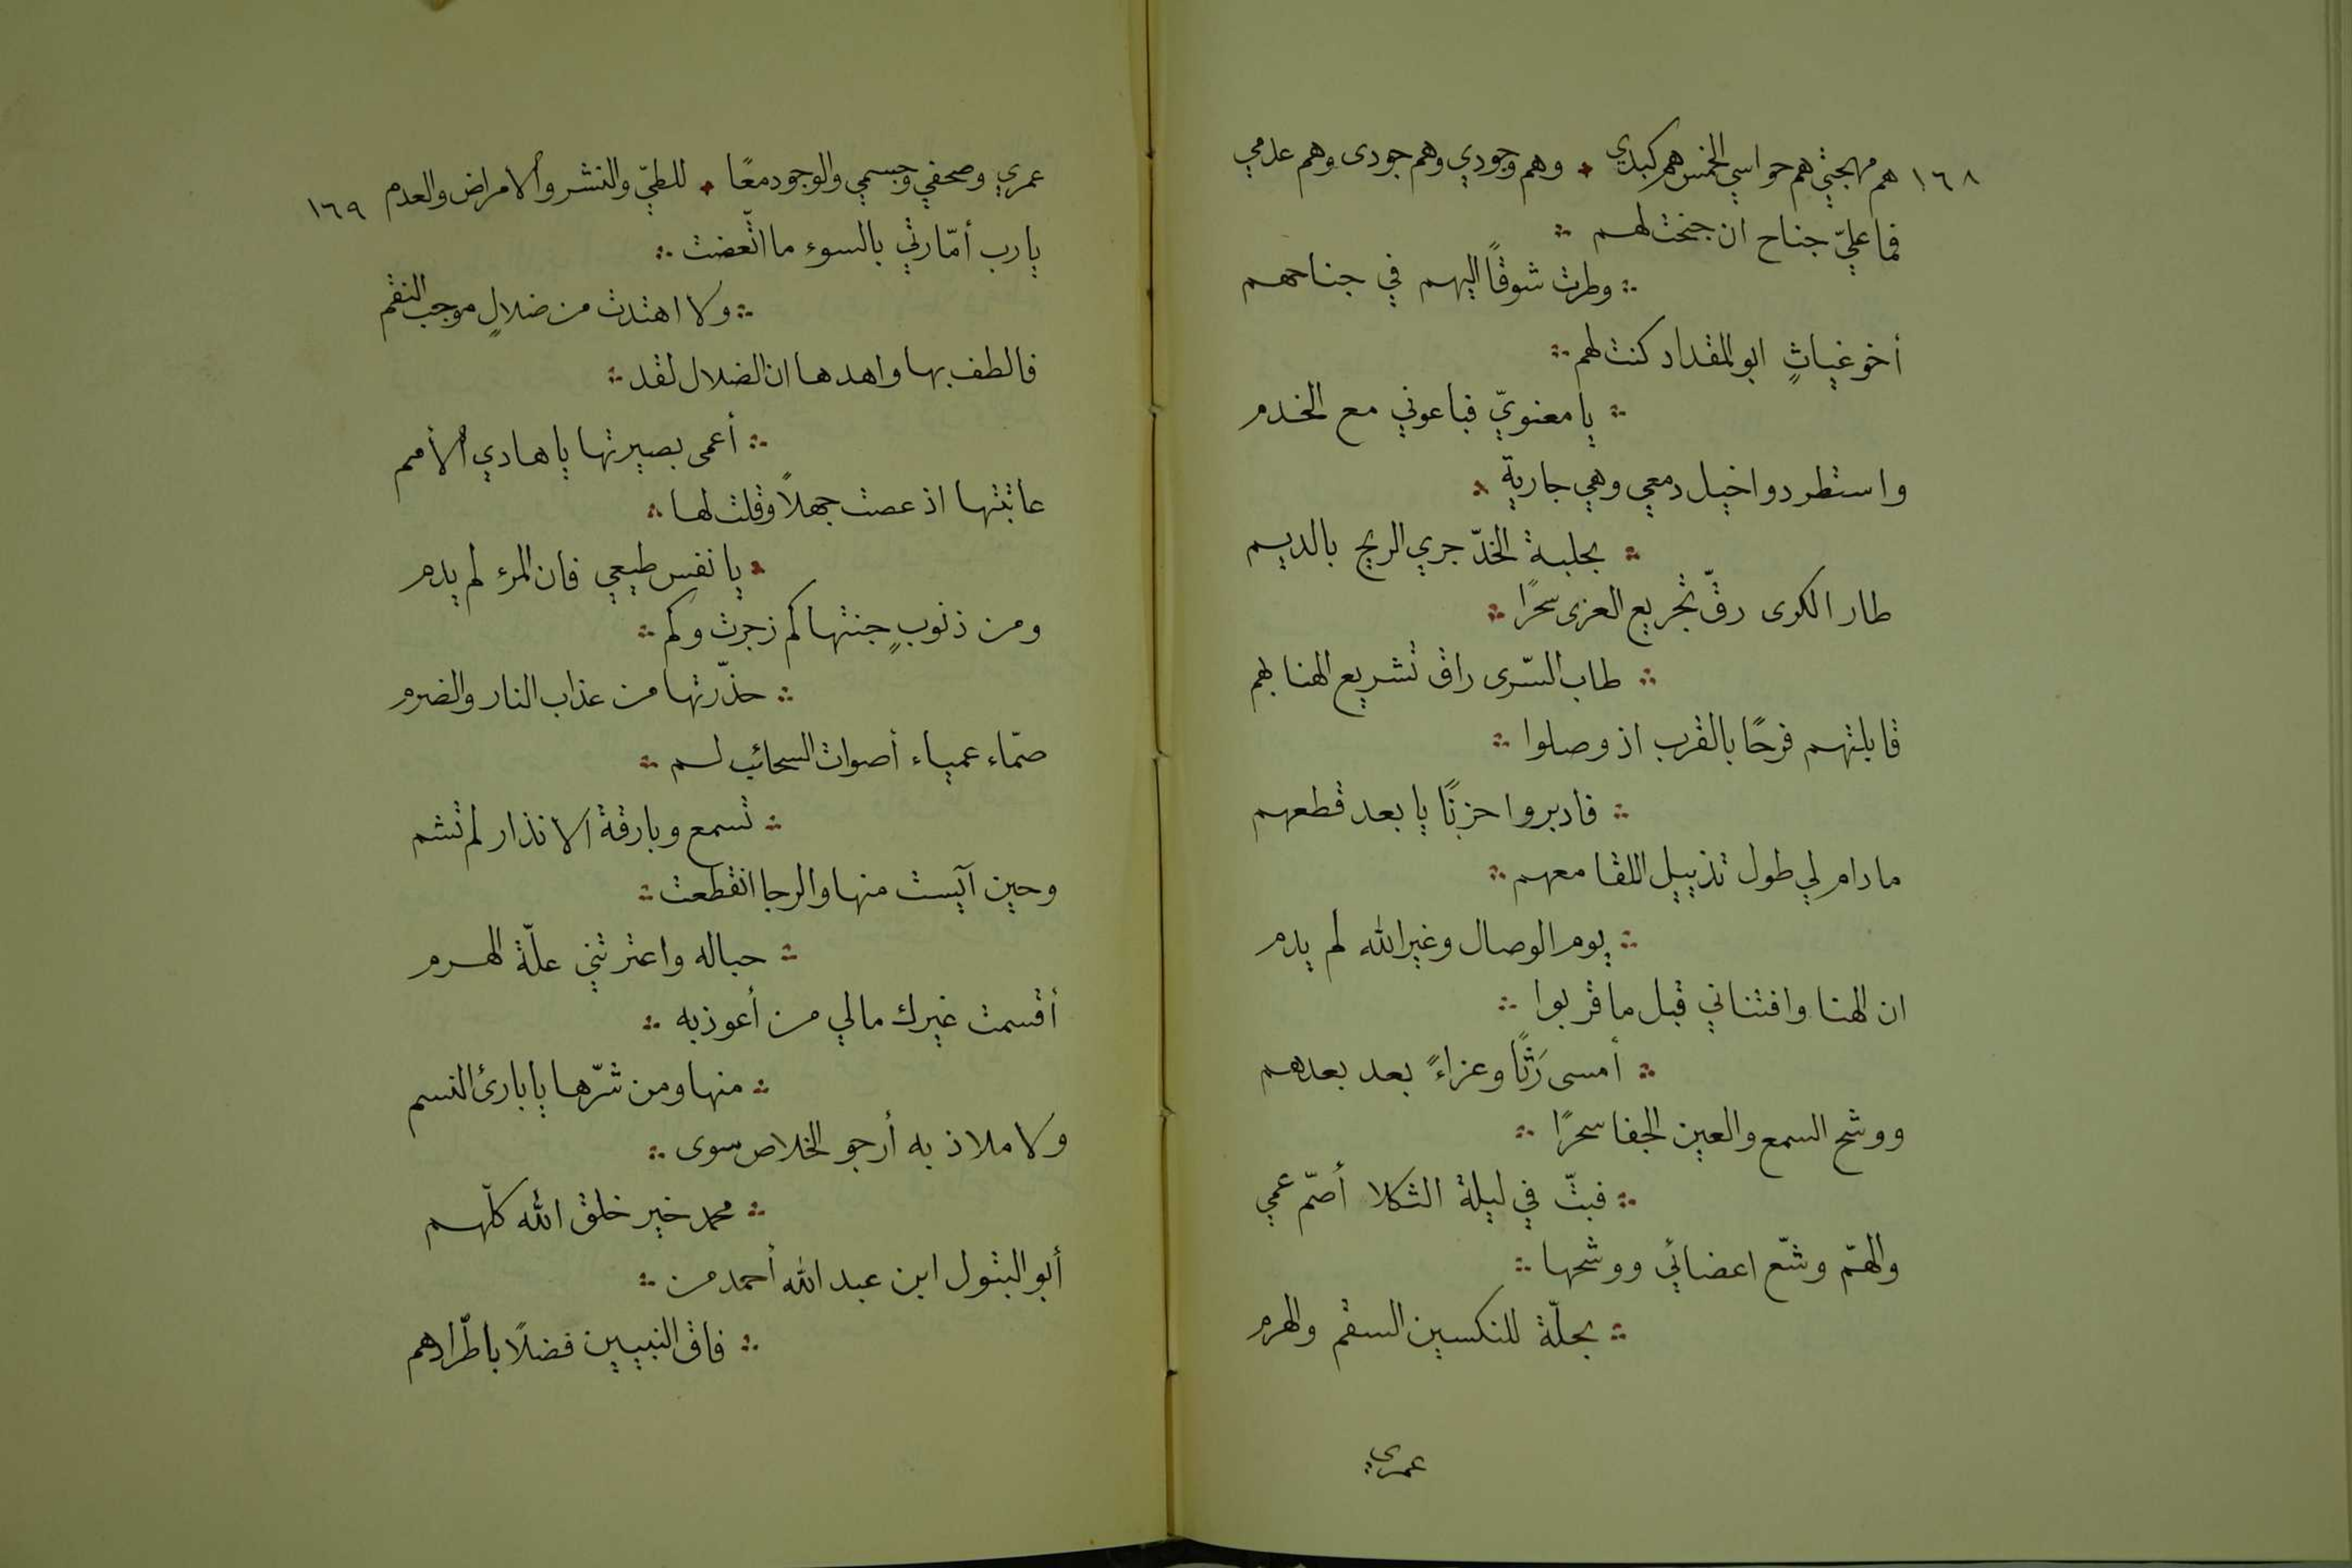 ١٦٨ هم مهجتي هم حواسي الخمس هم كبدي ؞ وهم وجودي وهم جودى وهم عدمي
فما عليّ جناح ان جنحت لهم ؞
؞ وطرت شوقًا اليهم في جناحهم
أخو غياثٍ ابو المقداد كنت لهم ؞
؞ يا معنويّ فباعوني مع الخدم
واستطردوا خيل دمعي وهي جارية ؞
؞ بحلبة الخدّ جري الريح بالديم
طار الكوى رقّ تجريع العزى سحرًا ؞
؞ طاب السّرى راق تشريع الهنا بهم
قابلتهم فرحًا بالقرب اذ وصلوا ؞
؞ فادبروا حزنًا يا بعد قطعهم
مادام لي طول تذييل اللقا معهم ؞
؞ يوم الوصال وغير الله لم يدم
ان الهنا وافتناني قبل ما قربوا ؞
؞ أمسى رَثًا وعزاءً بعد بعدهم
ووشح السمع والعين الجفا سحرًا ؞
؞ فبتّ في ليلة الثكلا أصمّ عمي
والهمّ وشّع اعضائي ووشحها ؞
؞ بحلّة للنكسين السقم والهرم
عمري
عمري وصحفي وجسمي والوجود معًا ؞ للطيّ والنشر والامراض والعدم ١٦٩
يارب أمّارتي بالسوء ما اتّعضت ؞
؞ ولا اهتدت من ضلالٍ موجب النقم
فالطف بها واهدها ان الضلال لقد ؞
؞ أعمى بصيرتها يا هادي الأمم
عاتبتها اذ عصت جهلاً وقلت لها ؞
؞ يا نفس طيعي فان المرء لم يدم
ومن ذنوبٍ جنتها كم زجرت وكم ؞
؞ حذّرتها من عذاب النار والضرم
صمّاء عمياء أصوات السحائب لم ؞
؞ تسمع وبارقة الانذار لم تشم
وحين آيست منها والرجا انقطعت ؞
؞ حباله واعترتني علّة الهرم
أقسمت غيرك مالي من أعوذ به ؞
؞ منها ومن شرّها يا بارئ النسم
ولا ملاذ به أرجو الخلاص سوى ؞
؞ محمد خير خلق الله كلّهم
أبو البتول ابن عبد الله أحمد من ؞
؞ فاق النبيين فضلاً باطّرادهم